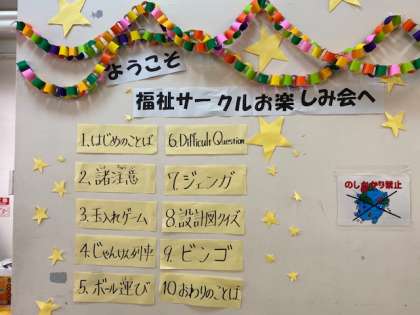 ようこそ
福祉サークルお楽しみ会へ
1.はじめのことば
2.諸注意
3.玉入れゲーム
4.じゃんけん列車
5.ボール運び
6.Difficult Question
7.ジェンガ
8.設計図クイズ
9.ビンゴ
10.おわりのことば
のしかかり禁止